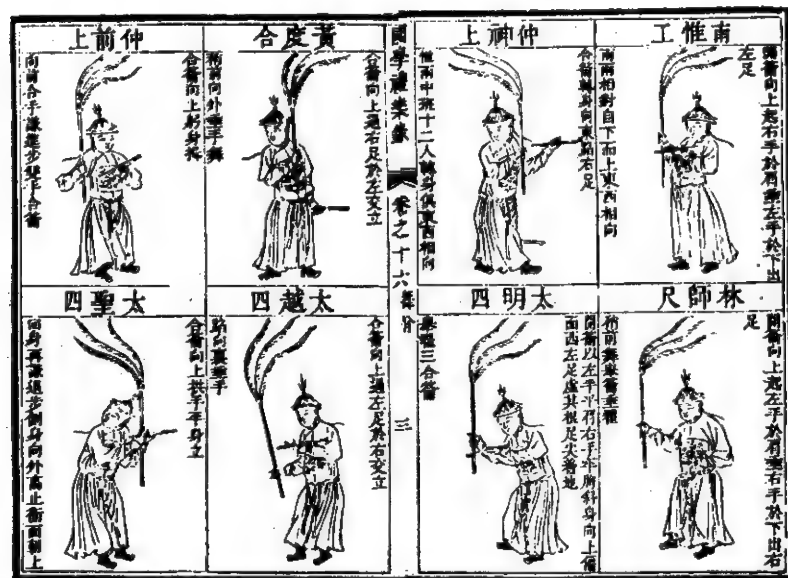 南惟工
開籥向上起右手於肩垂左手於下出
左足
兩兩相對自下而上東西相向
仲神上
合籥轉身向東點右足
惟兩中班十二人轉身俱東西相向
林師尺
開籥向上起左手於肩垂右手於下出右
足
稍前舞舉籥垂翟
太明四
開籥以左手平肩右手平胸斜身向上偏
面西左足虛其根足尖着地
舉翟三合籥
國學禮樂錄
卷之十六
三
黃度合
合籥向上過右足於左交立
稍前向外垂手舞
仲前上
合籥向上躬身
向前合手謙進步雙手合籥
太越四
合籥向上過左足於右交立
蹈向裏垂手
太聖四
合籥向上拱手平身立
向身再謙退步側身向外高止籥面朝上